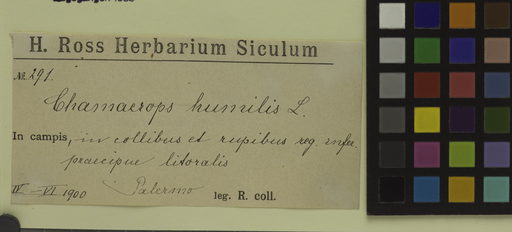 H. Ross Herbarium Siculum
№. 291.
Chamaerops humilis L.
In campis, in collibus et rupibus reg. infer.
praecipue litoralis
IV — VI 1900 Palermo leg. R. coll.